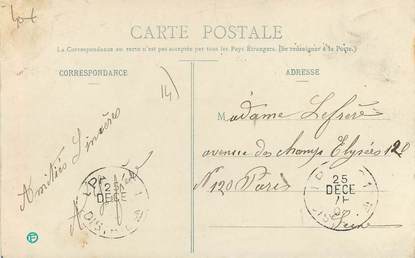 CARTE POSTALE
La Correspondance au recto n'est pas acceptée par tous les Pays Étrangers. (Se renseigner à la Poste.)
CORRESPONDANCE
ADRESSE
14)
Madame Lefevre
avenue des champs Elysées 120
N 120 Paris
Seine
Amitiés Sincères
25
DECE
25
DECE